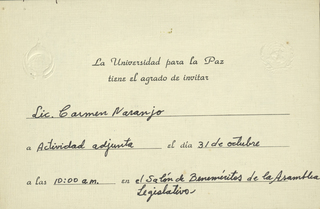 La Universidad para la Paz
tiene el agrado de invitar
Lic. Carmen Naranjo
a Actividad adjunta el día 31 de octubre
a las 10:00 a.m. en el Salón de Beneméritos de la Asamblea
Legislativa